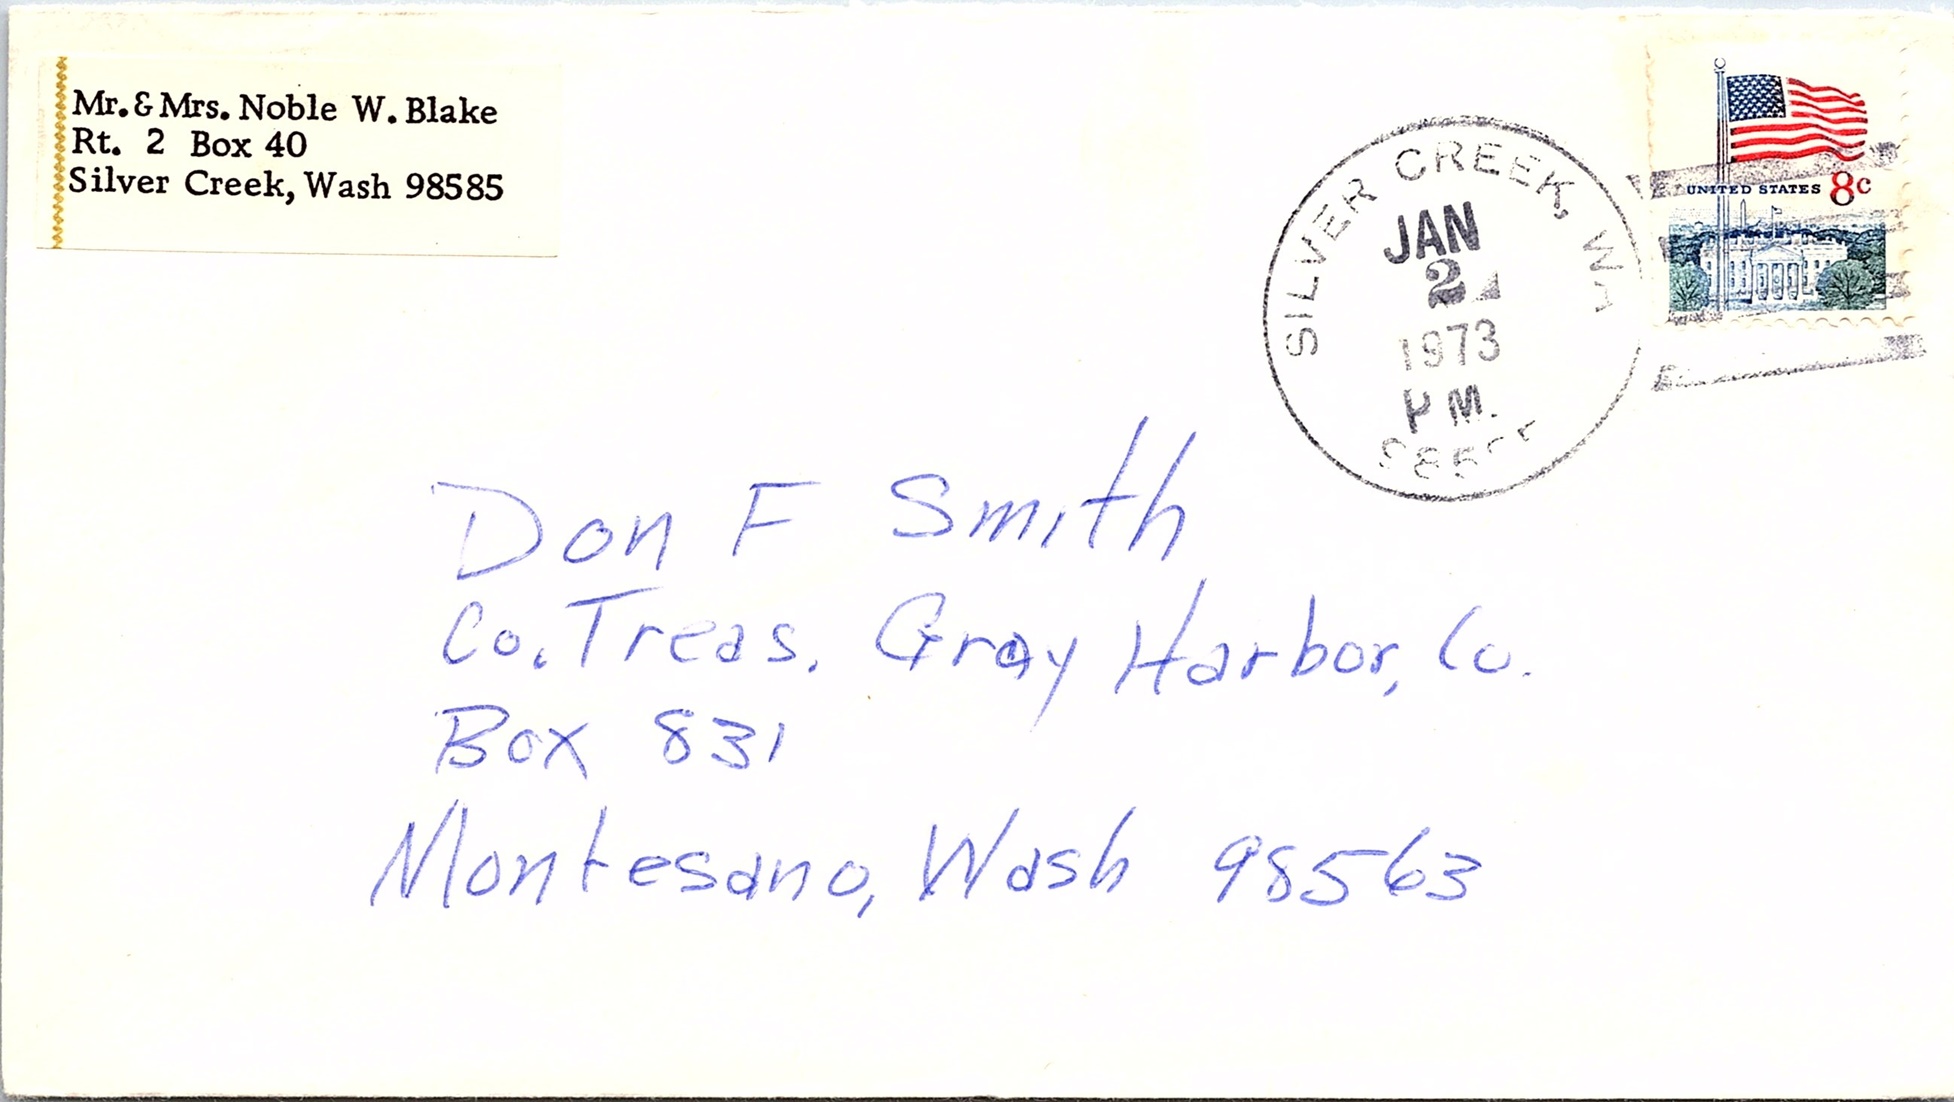 Mr. & Mrs. Noble W. Blake
Rt. 2 Box 40
Silver Creek, Wash 98585
SILVER CREEK, WA
JAN
2
1973
PM.
UNITED STATES 8c
Don F Smith
Co. Treas. Gray Harbor, Co.
Box 831
Montesano, Wash 98563